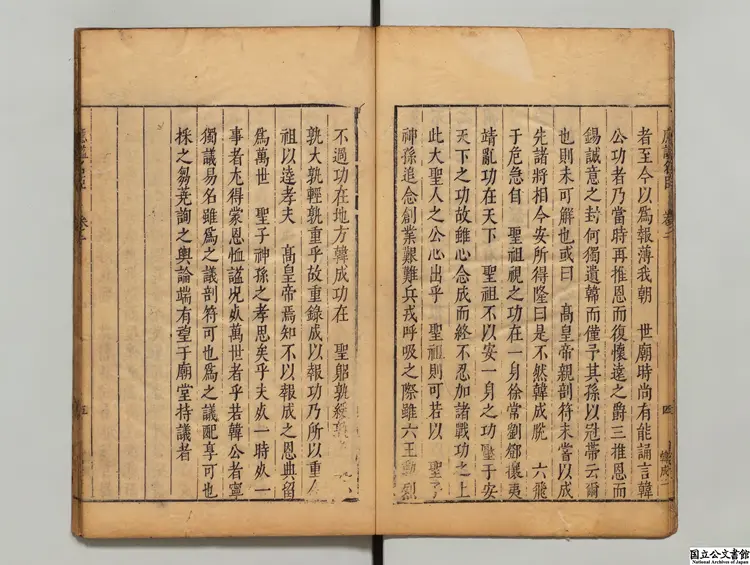 者至今以爲報薄我朝　世廟時尚有能誦言韓
公功者乃當時再推恩而復懷遠之爵三推恩而
錫誠意之封何獨遺韓而僅予其孫以冠帶云爾
也則未可解也或曰　高皇帝親剖符未嘗以成
先諸將相今安所得隆曰是不然韓成脫　六飛
于危急自　聖祖視之功在一身徐常劉鄧攘夷
靖亂功在天下　聖祖不以安一身之功
天下之功故雖心念成而終不忍加諸戰功之上
此大聖人之公心出乎　聖祖則可若以　聖子
神孫追念創業艱難兵戎呼吸之際雖六王動烈
四
不過功在地方韓成功在　聖躬孰
孰大孰輕孰重乎故重錄成以報功乃所以重
祖以達孝夫　高皇帝焉知不以報成之恩典留
爲萬世　聖子神孫之孝思矣乎夫一時一
事者尤得蒙恩恤謚况萬世者乎若韓公者寧
獨議易名雖爲之議剖符可也爲之議配享可也
採之芻蕘詢之輿論端有望于廟堂持議者
五
国立公文書館
National Archives of Japan